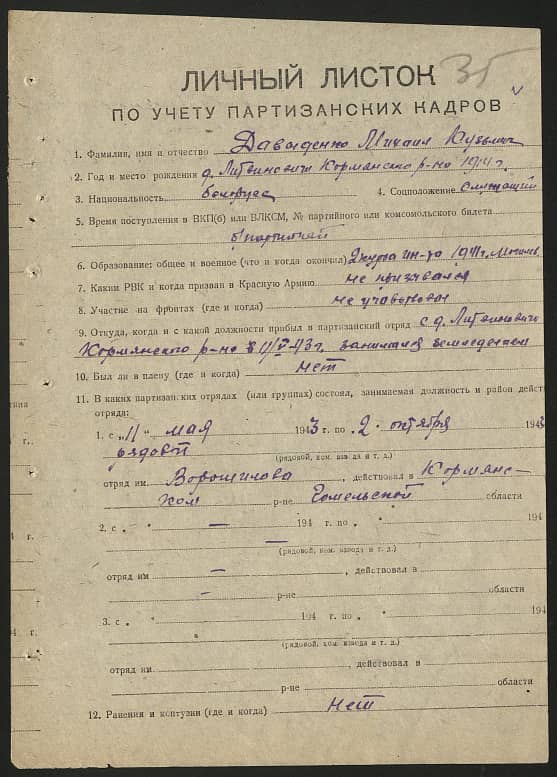 35
ЛИЧНЫЙ ЛИСТОК
ПО УЧЕТУ ПАРТИЗАНСКИХ КАДРОВ
1. Фамилия, имя и отчество Давыденко Михаил Кузьмич
2. Год и место рождения д. Литвиновичи Кормянского р-на 1914 г.
3. Национальность белорус 4. Соцположение служащий
5. Время поступления в ВКП(б) или ВЛКСМ, № партийного или комсомольского билета
б/партийный
6. Образование: общее и военное (что и когда окончил) 2 курса ин-та 1941 г.
7. Каким РВК и когда призван в Красную Армию не призывался
8. Участие на фронтах (где и когда) не участвовал
9. Откуда, когда и с какой должности прибыл в партизанский отряд с д. Литвиновичи
Кормянского р-на 11/V-43 г. занимался земледелием
10. Был ли в плену (где и когда) нет
11. В каких партизанских отрядах (или группах) состоял, занимаемая должность и район дейст
отряда:
1. с „11" мая 1943 г. по „2" октября 1943
рядовой
(рядовой, ком. взвода и т. д.)
отряд им. Ворошилова, действовал в Кормянс-
ком р-не Гомельской области
2. с „ " — 194 г. по „ " 194
—
(рядовой, ком. взвода и т. д.)
отряд им — , действовал в
— р-не области
3. с „ " 194 г. по „ " 194
(рядовой, ком. взвода и т. д.)
отряд им. , действовал в
р-не области
12. Ранения и контузии (где и когда) нет